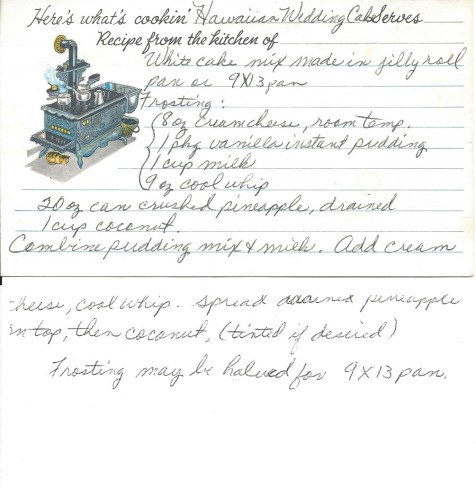 Here's what's cookin' Hawaiian Wedding Cake Serves
Recipe from the kitchen of
White cake mix made in jilly roll
pan or 9X13 pan
Frosting:
8 oz creamcheese, room temp.
1 pkg vanilla instant pudding
1 cup milk
9 oz cool whip
20 oz can crushed pineapple, drained
1 cup coconut.
Combine pudding mix & milk. Add cream
cheese, cool whip. Spread drained pineapple
on top, then coconut, (tinted if desired)
Frosting may be halved for 9X13 pan.